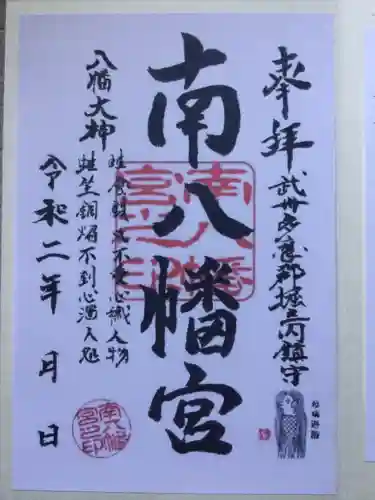 奉拝
武州多摩郡堀之内鎮守
疫病退散
南八幡宮
南八幡宮之印
八幡大神
雖食銅焔不受心穢人物
雖坐銅焔不到心濁人処
令和二年 月 日
南八幡宮之印